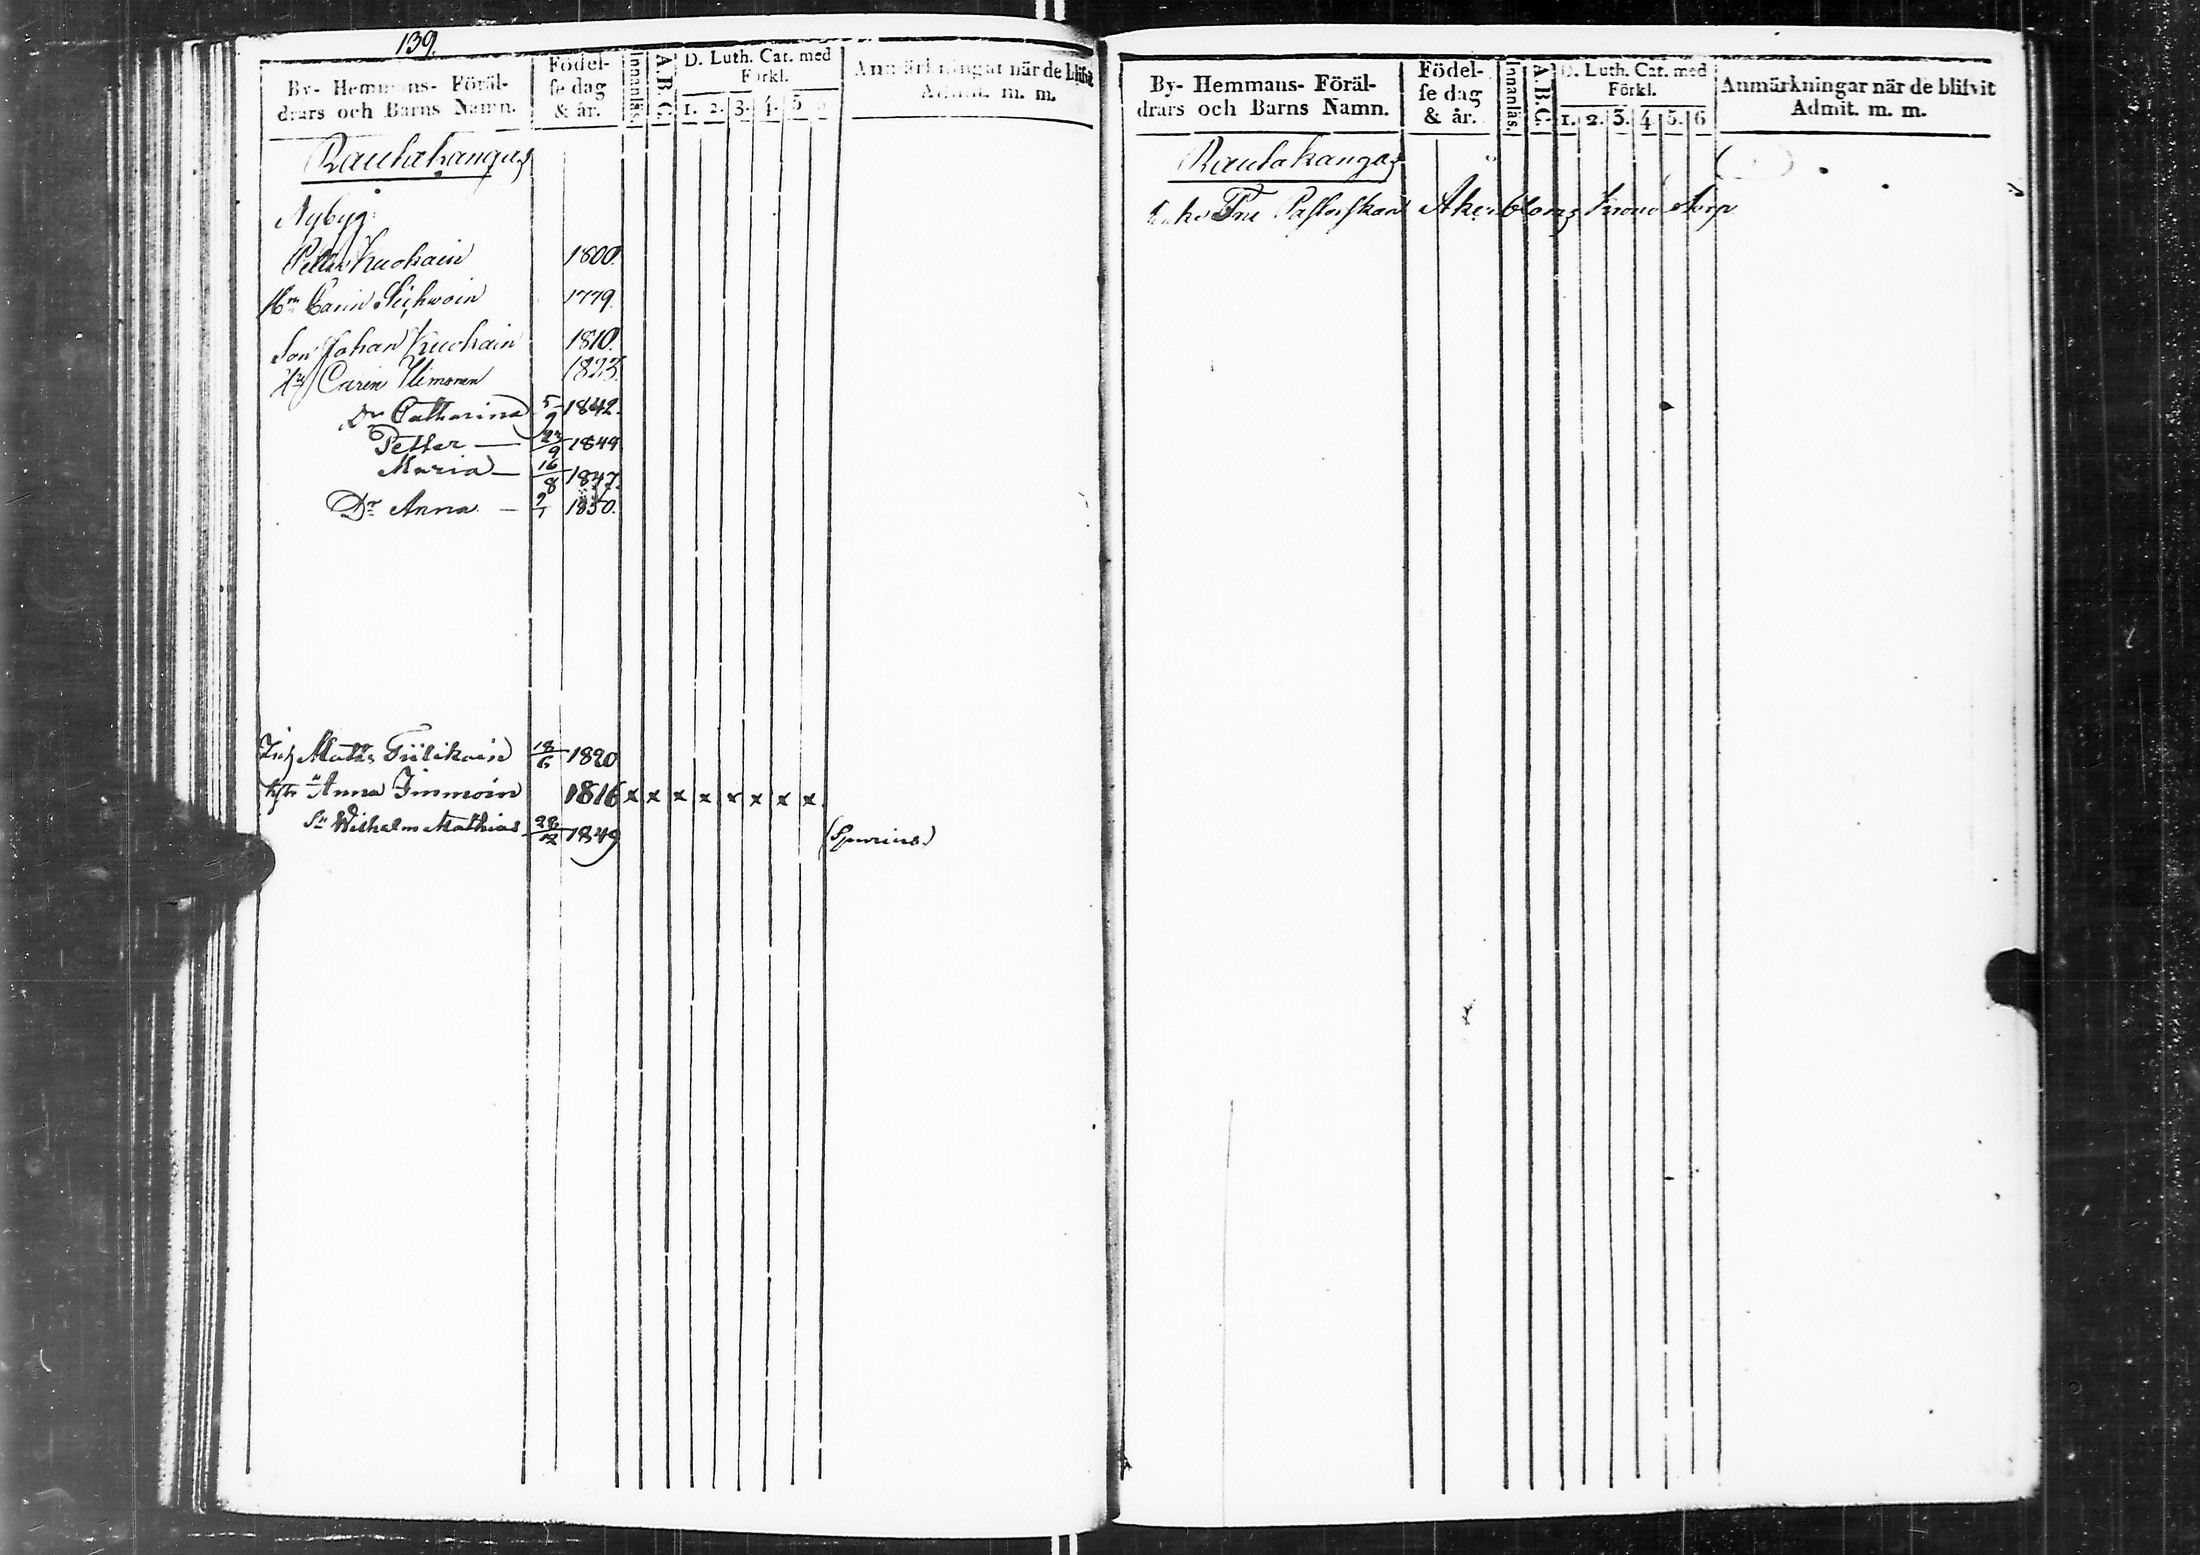 139.
By- Hemmans- Föräl-
drars och Barns Namn.
Födel-
se dag
& år.
Innanläs.
A.B.C.
D. Luth. Cat. med
Förkl.
1. 2. 3. 4. 5
Anmärkningar när de blifvit
Admit. m. m.
Rautakangas
Nybyg:
Petter Kuokain 1800.
Carin 1779.
Son Johan Kuokain 1810.
Carin Ilimonen 1823.
Dr Catharina 5/9 1842.
Petter — 9 1844
Maria — 16/8 1847.
Dr Anna — 9/1 1850.
Inh Matts Tiilikain 18/6 1820
Anna Immoin 1816 x x x x x x x x
Sn Wilhelm Mathias 28/12 1849 (Spurius.)
By- Hemmans- Föräl-
drars och Barns Namn.
Födel-
se dag
& år.
Innanläs.
A.B.C.
D. Luth. Cat. med
Förkl.
1. 2. 3. 4 5. 6
Anmärkningar när de blifvit
Admit. m. m.
Rautakangas
Enke Fru Pastorskan Åkerbloms Krono Torp